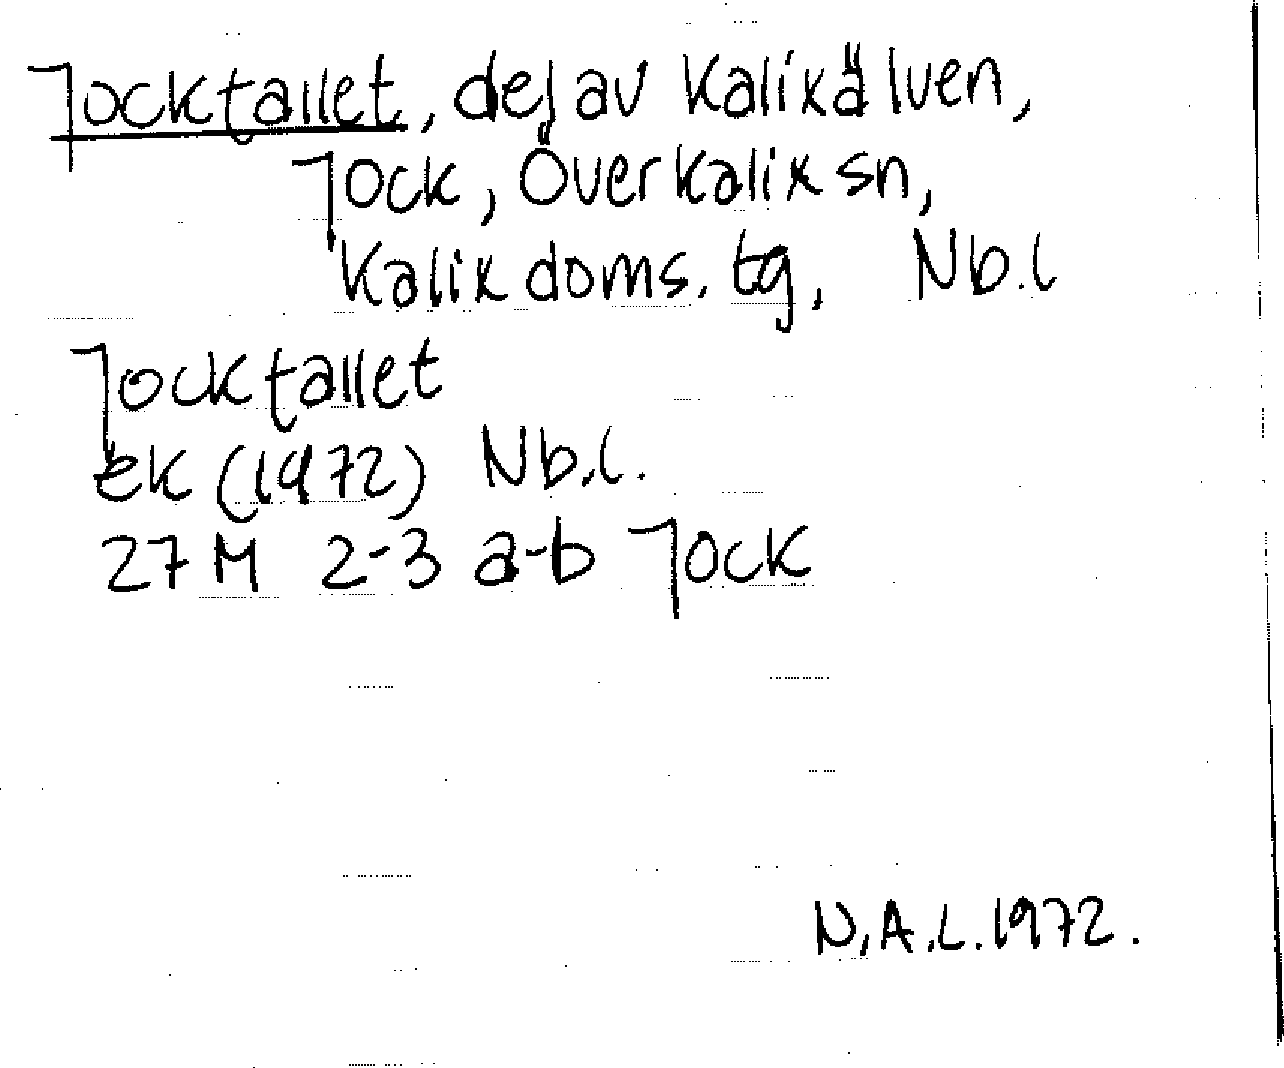 Jockfallet, del av Kalixälven,
Jock, Överkalix sn,
Kalix doms. tg, Nb.l
Jockfallet
EK (1972) Nb.l.
27 M 2-3 a-b Jock
N.A.L. 1972.